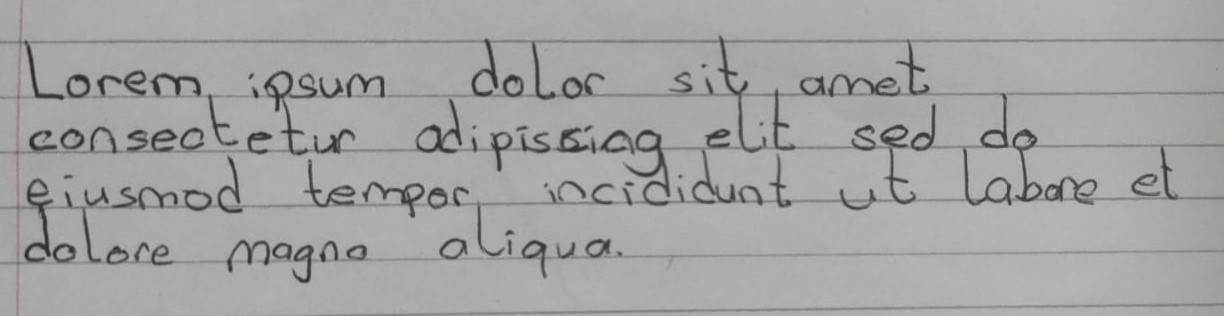 Lorem ipsum dolor sit amet
consectetur adipissing elit sed do
eiusmod tempor incididunt ut labore et
dolore magna aliqua.